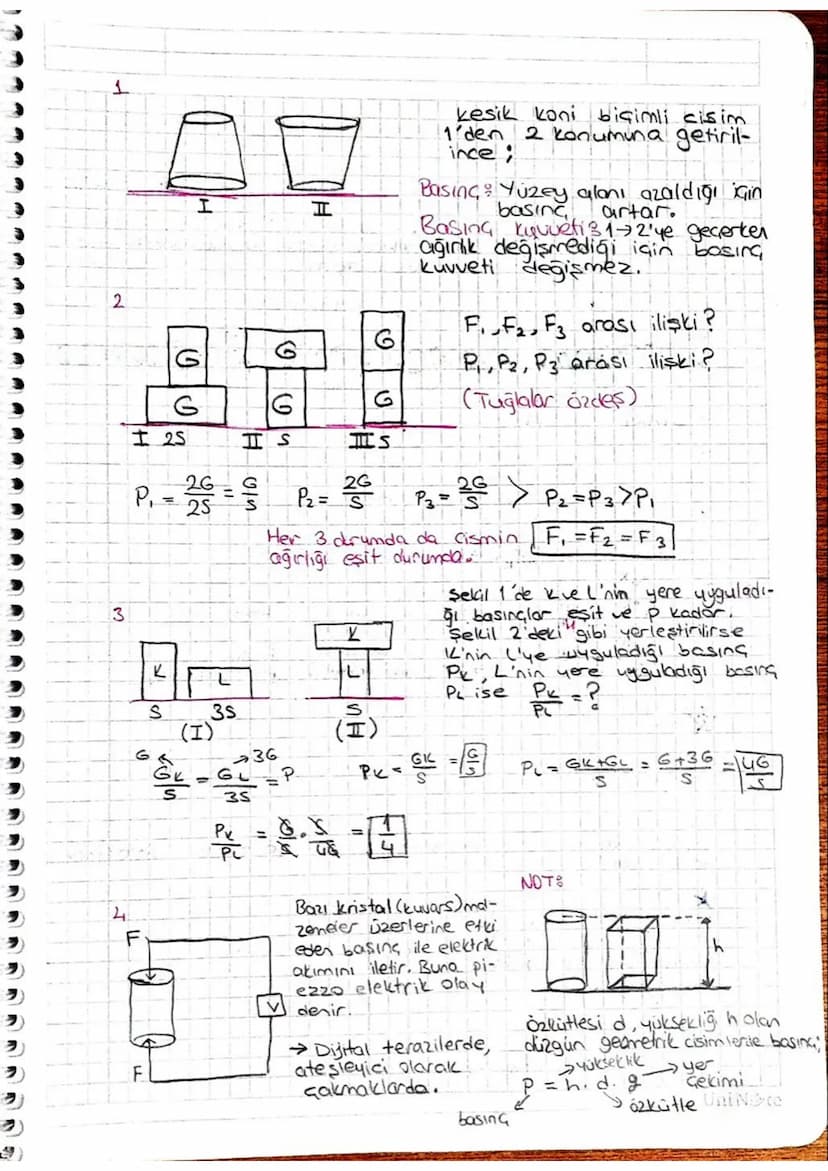 1
Kesik koni biçimli cisim
1'den 2 konumuna getiril-
ince;
I
II
Basınç: Yüzey alanı azaldığı için
basınç artar.
Basınç kuvveti: 1→2'ye geçerken
ağırlık değişmediği için basınç
kuvveti değişmez.
2
G
G
G
G
G
G
I 2S
II S
III S
F₁, F₂, F₃ arası ilişki?
P₁, P₂, P₃ arası ilişki?
(Tuğlalar özdeş)
P₁ = 2G/2S = G/S P₂ = 2G/S P₃ = 2G/S > P₂=P₃>P₁
Her 3 durumda da cismin
ağırlığı eşit durumda.
F₁ = F₂ = F₃
3
Şekil 1'de K ve L'nin yere uyguladı-
ğı basınçlar eşit ve P kadar.
Şekil 2'deki gibi yerleştirilirse
K'nin L'ye uyguladığı basınç
PK, L'nin yere uyguladığı basınç
PL ise PK/PL = ?
K
L
S
3S
(I)
K
L
S
(II)
G 3G
GK/S = GL/3S = P
PK = GK/S = G/S
PL = GK+GL/S = G+3G/S = 4G/S
PK/PL = G/S . S/4G = 1/4
4
F
V
F
Bazı kristal (kuvars) mal-
zemeler üzerlerine etki
eden basınç ile elektrik
akımını iletir. Buna pi-
ezzo elektrik olay
denir.
→ Dijital terazilerde,
ateşleyici olarak
çakmaklarda.
NOT:
h
Özkütlesi d, yüksekliğ h olan
düzgün geometrik cisimlerde basınç;
→yükseklik
→yer
çekimi
P = h. d. g
→özkütle
basınç
UniNote